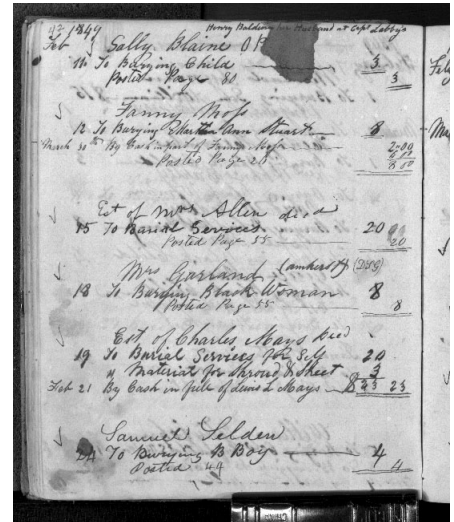 43 1849 Henry Balding her Husband at Capt Labby's
Feb Sally Blaine
To Burying Child 3
Posted Page 80 3
Fanny Moss
12 To Burying Martha Ann Stuart 8
March By Cash in part of Fanny Moss 2.00
Posted Page 20 6 00
8 00
Est of Mrs Allen died
15 To Burial Services 20
Posted Page 55 20
Mrs Garland (amherst)
18 To Burying Black Woman 8
Posted Page 55 8
Est of Charles Mays Died
19 To Burial Services for Self 20
" Material for Shroud & Sheet 3
Feb 21 By Cash in full of Lewis L Mays 23 23
Samuel Selden
24 To Burying B Boy 4
Posted 44 4